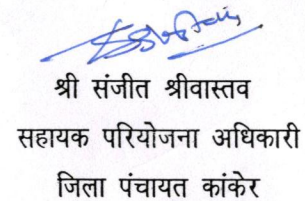 श्री संजीत श्रीवास्तव
सहायक परियोजना अधिकारी
जिला पंचायत कांकेर